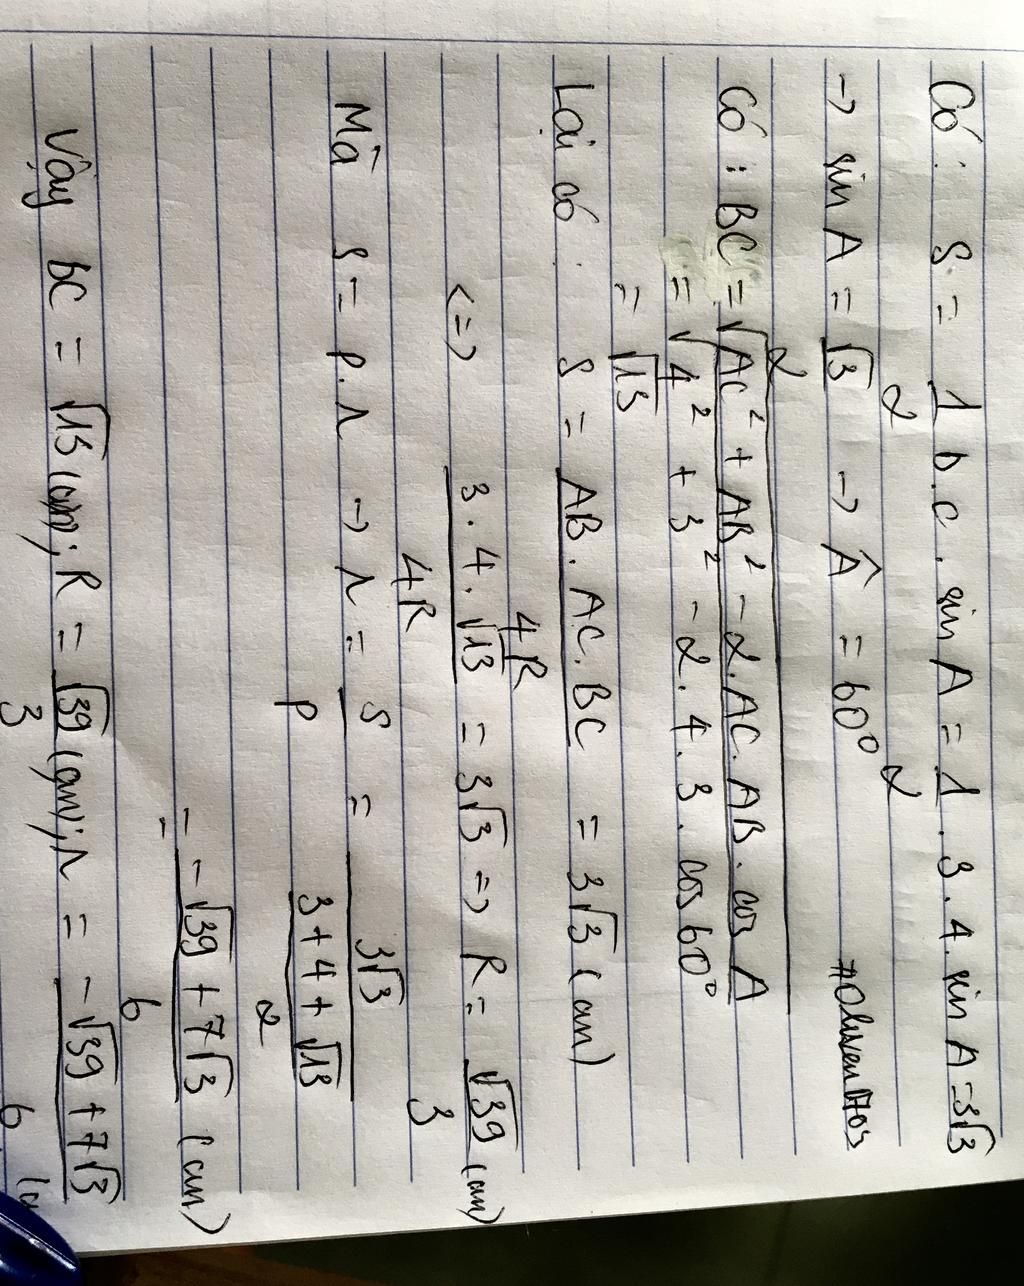 Có: S = 1/2 b.c. sin A = 1/2 . 3.4. sin A = 3√3
→ sin A = √3/2 → Â = 60°
Có: BC = √AC² + AB² - 2.AC.AB.cos A
= √4² + 3² - 2.4.3.cos 60°
= √13
Lại có: S = AB.AC.BC/4R = 3√3 (cm)
<=> 3.4.√13/4R = 3√3 => R = √39/3 (cm)
Mà S = p.r → r = S/p = 3√3/(3+4+√13)/2
= -√39 + 7√3/6 (cm)
Vậy BC = √13 (cm); R = √39/3 (cm); r = -√39 + 7√3/6